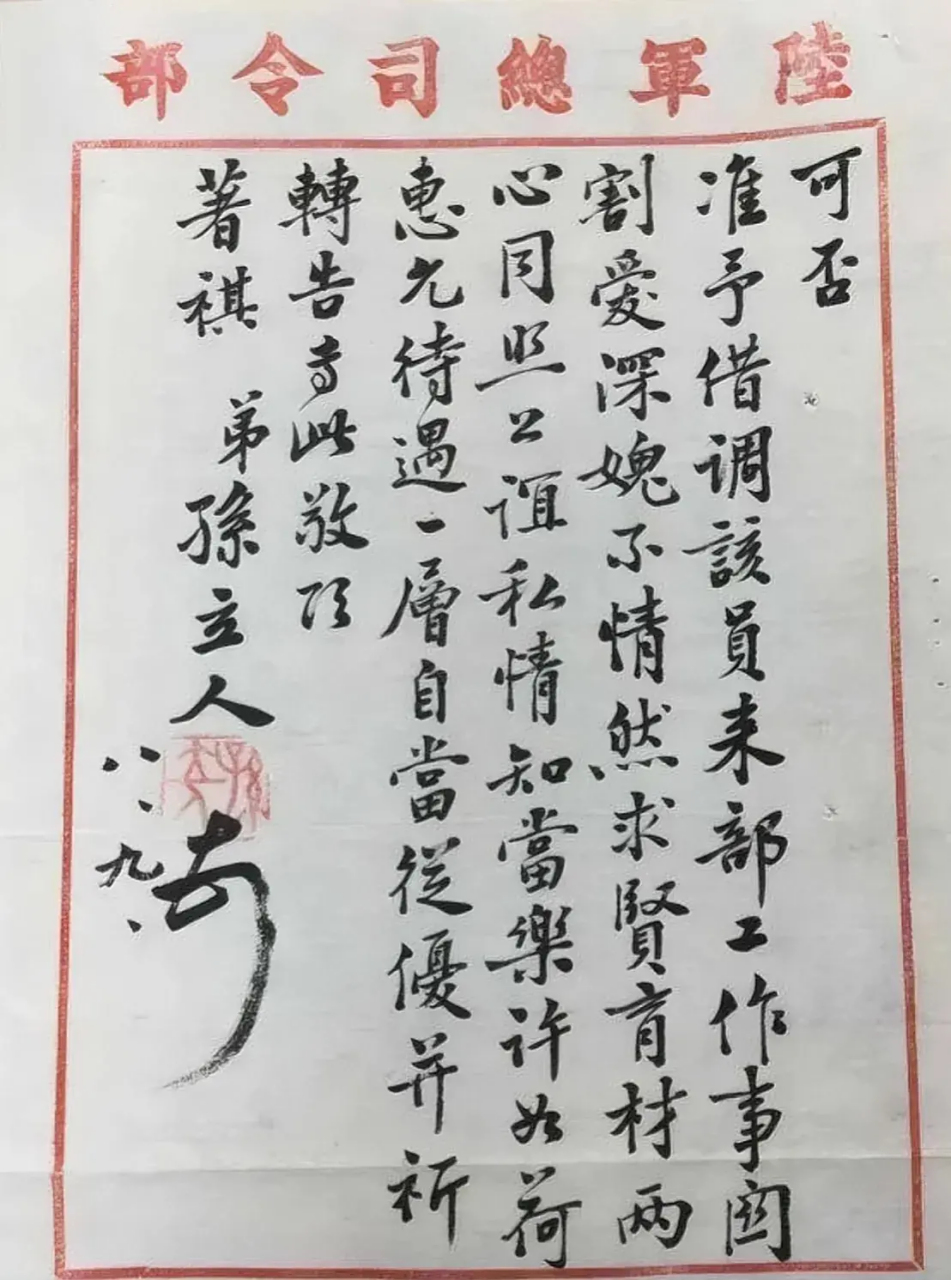 陸軍總司令部
可否
准予借调該員来部工作事関
割愛深媿不情然求賢育材两
心同照公誼私情知當樂許如荷
惠允待遇一層自當從優并祈
轉告專此敬頌
著祺
弟孫立人
八、九、